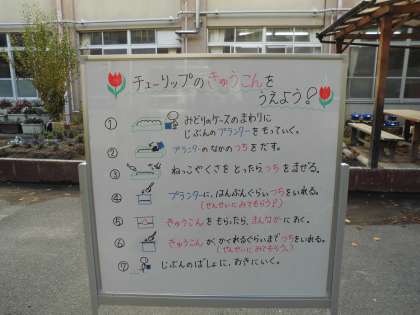 チューリップのきゅうこんを
うえよう！
① みどりのケースのまわりに
じぶんのプランターをもっていく。
② プランターのなかのつちをだす。
③ ねっこやくさをとったら、つちをまぜる。
④ プランターに、はんぶんぐらいつちをいれる。
(せんせいにみてもらう？)
⑤ きゅうこんをもらったら、まんなかにおく。
⑥ きゅうこんがかくれるぐらいまでつちをいれる。
(せんせいにみてもらう。)
⑦ じぶんのばしょに、おきにいく。